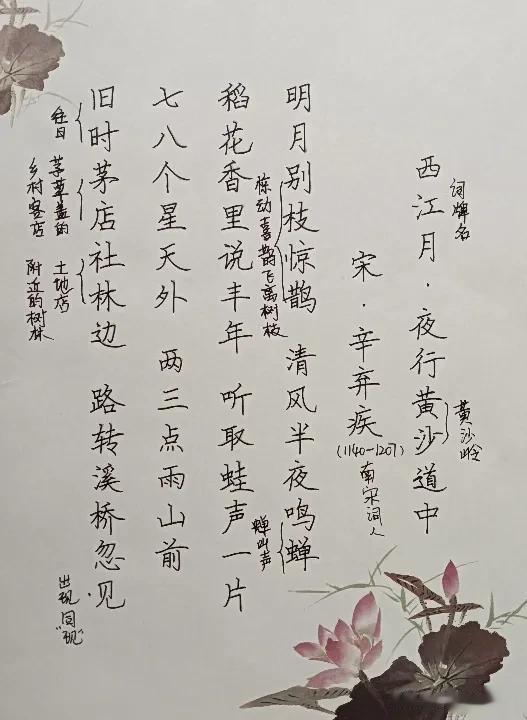 西江月·夜行黄沙道中
词牌名
黄沙岭
宋·辛弃疾
(1140-1207)
南宋词人
明月别枝惊鹊 清风半夜鸣蝉
惊动喜鹊飞离树枝
蝉叫声
稻花香里说丰年 听取蛙声一片
七八个星天外 两三点雨山前
旧时茅店社林边 路转溪桥忽见
往日
茅草盖的
乡村客店
土地店
附近的树林
出现同
"现"